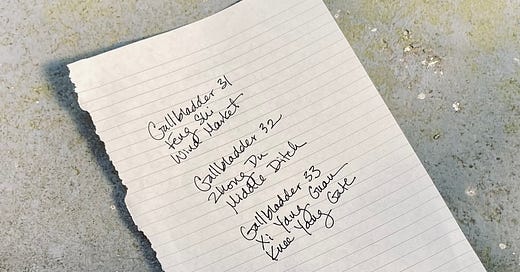 Gallbladder 31
Feng Shi
Wind Market
Gallbladder 32
Zhong Du
Middle Ditch
Gallbladder 33
Xi Yang Guan
Knee Yang Gate